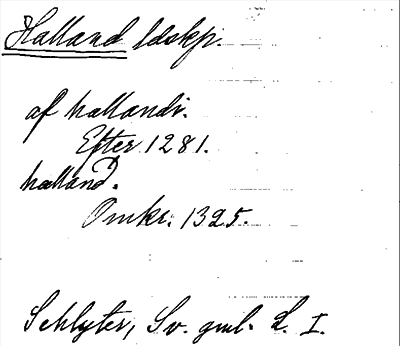 Halland ldskp.
af hallandi.
Efter 1281.
halland.
Omkr. 1325.
Schlyter, Sv. gml. L. I.